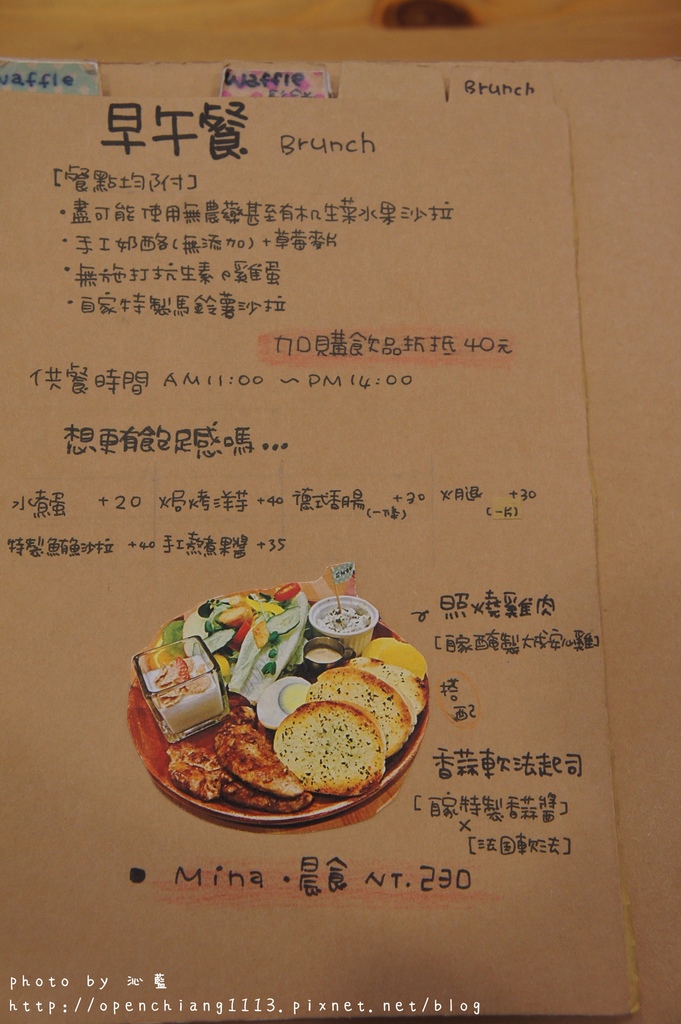 waffle
Waffle
Brunch
早午餐 Brunch
[餐點均附]
·盡可能使用無農藥甚至有机生菜水果沙拉
·手工奶酪(無添加)+草莓麥片
·無施打抗生素e雞蛋
·自家特製馬鈴薯沙拉
加購飲品折抵 40元
供餐時間 AM11:00 ~ PM14:00
想更有飽足感嗎...
水煮蛋 +20 焗烤洋芋 +40 德式香腸(一條) +30 火腿(一片) +30
特製鮪魚沙拉 +40 手工熬煮果醬 +35
照燒雞肉
[自家醃製大成安心雞]
搭配
香蒜軟法起司
[自家特製香蒜醬]
×
[法国軟法]
• Mina·晨食 NT.230
photo by 沁藍
http://openchiang1113.pixnet.net/blog